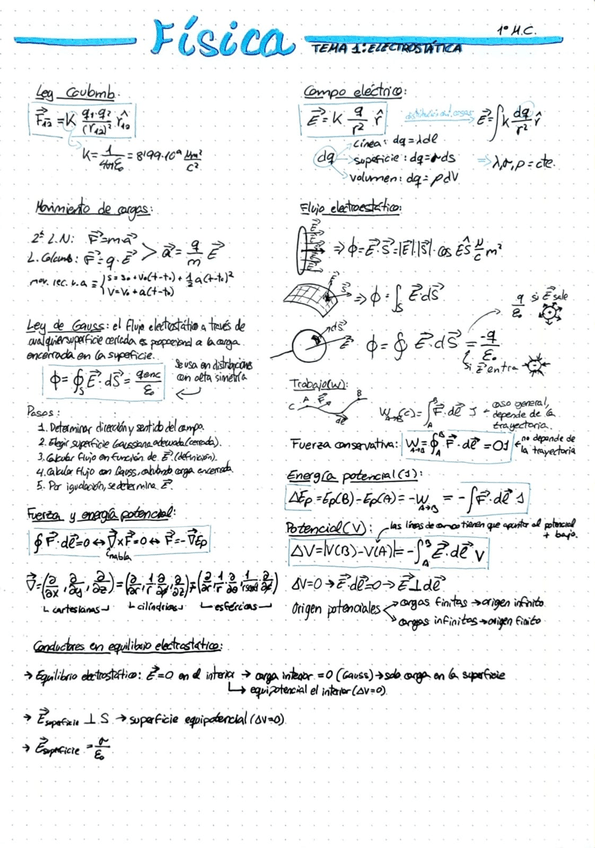 Física
TEMA 1: ELECTROSTÁTICA
1º M.C.
Ley Coulomb.
F⃗₁₂ = K q₁·q₂/(r₁₂)² r̂₁₂
K = 1/4πε₀ = 8'99·10⁹ Nm²/C²
Campo eléctrico:
E⃗ = K q/r² r̂
E⃗ = ∫ K dq/r² r̂
dq
línea: dq = λdl
superficie: dq = σds
volumen: dq = ρdV
⇒ λ, σ, ρ = cte.
Movimiento de cargas:
2ª L.N: F⃗ = m·a⃗
L. Coulomb: F⃗ = q·E⃗
> a⃗ = q/m E⃗
mov. rec. u.a = { s = s₀ + v₀(t-t₀) + ½a(t-t₀)²
v = v₀ + a(t-t₀)
Flujo electrostático:
⇒ ϕ = E⃗·S⃗ = |E⃗|·|S⃗|·cos ÊS
⇒ ϕ = ∫ₛ E⃗·dS⃗
ϕ = ∮ E⃗·dS⃗ =
q/ε₀ si E⃗ sale
-q/ε₀
si E⃗ entra
Ley de Gauss: el flujo electrostático a través de
cualquier superficie cerrada es proporcional a la carga
encerrada en la superficie.
ϕ = ∮ₛ E⃗·dS⃗ = qenc/ε₀
Se usa en distribuciones
con alta simetría
Pasos:
1. Determinar dirección y sentido del campo.
2. Elegir superficie Gaussiana adecuada (cerrada).
3. Calcular flujo en función de E⃗ (definición).
4. Calcular flujo con Gauss, calculando carga encerrada.
5. Por igualación, se determina E⃗.
Trabajo (W):
W A→B (C) = ∫ₐᴮ F⃗·dl⃗ J
caso general,
depende de la
trayectoria.
Fuerza conservativa: W A→A = ∮ₐᴬ F⃗·dl⃗ = 0 J
no depende de
la trayectoria
Energía potencial (J):
ΔEp = Ep(B) - Ep(A) = -W A→B = -∫ F⃗·dl⃗ J
Fuerza y energía potencial:
∮ F⃗·dl⃗ = 0 ⇔ ∇⃗ × F⃗ = 0 ⇔ F⃗ = -∇⃗Ep
nabla
Potencial (V):
las líneas de campo tienen que apuntar al potencial
+ bajo.
ΔV = |V(B) - V(A)| = -∫ₐᴮ E⃗·dl⃗ V
∇⃗ = (∂/∂x, ∂/∂y, ∂/∂z)
cartesianas
cilíndricas
esféricas
ΔV = 0 → E⃗·dl⃗ = 0 → E⃗ ⊥ dl⃗
Origen potenciales
cargas finitas → origen infinito
cargas infinitas → origen finito
Conductores en equilibrio electrostático:
→ Equilibrio electrostático: E⃗ = 0 en el interior → carga interior = 0 (Gauss) → solo carga en la superficie
↳ equipotencial el interior (ΔV=0)
→ E⃗superficie ⊥ S → superficie equipotencial (ΔV=0)
→ E⃗superficie = σ/ε₀